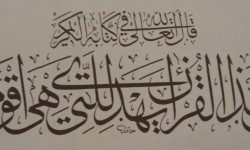 قال الله تعالى في كتابه الكريم
هذا القرآن يهدي للتي هي أقوم